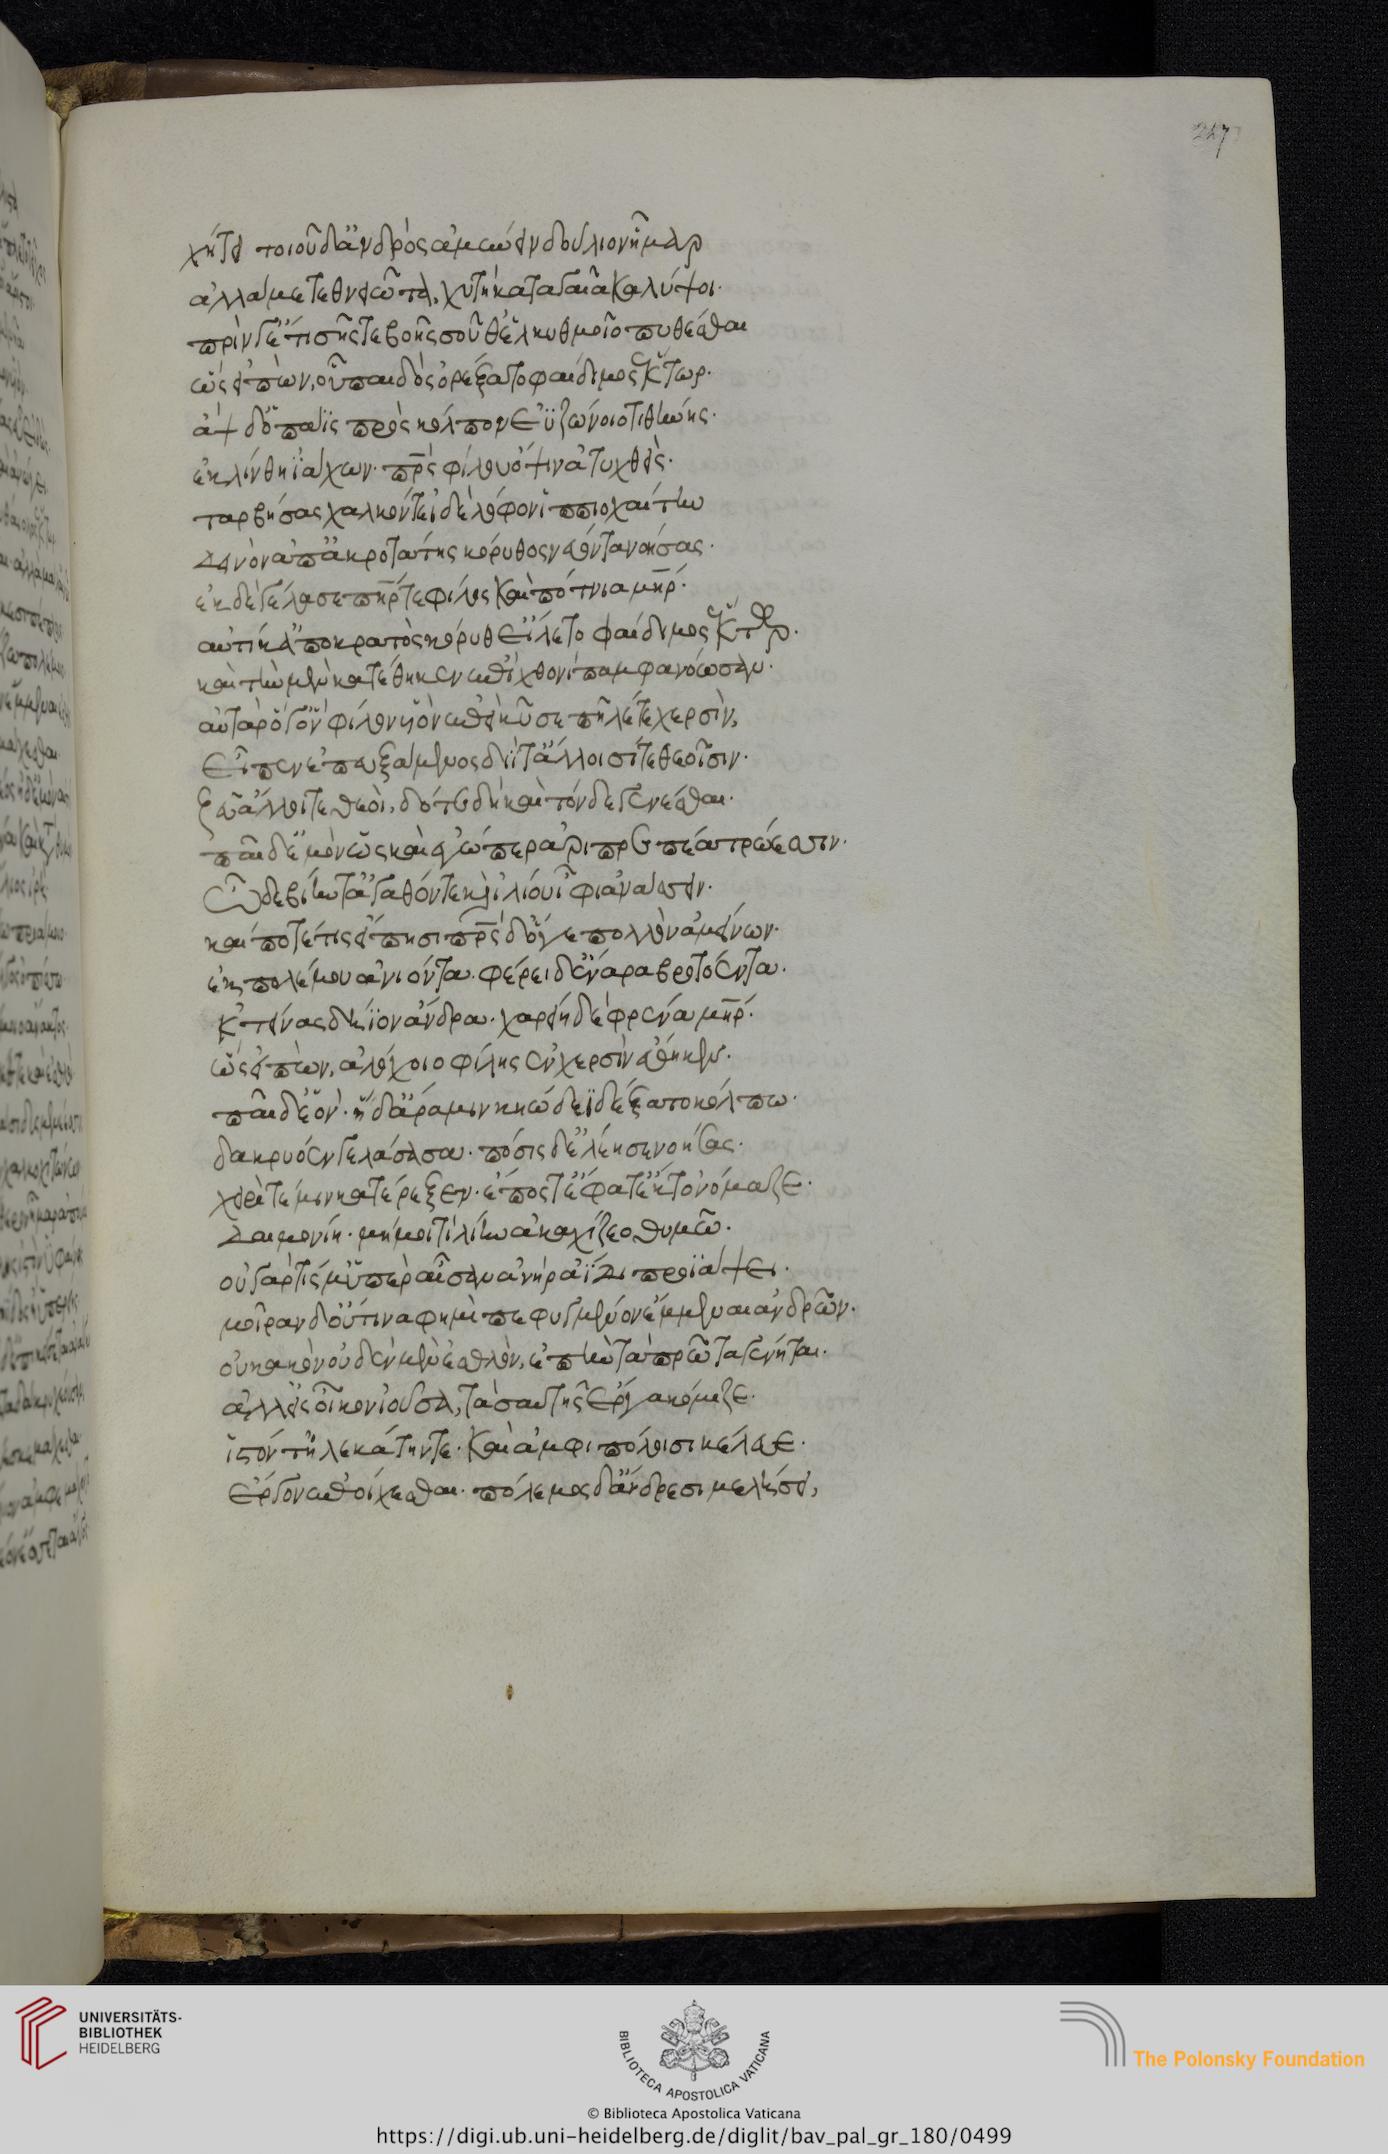 247
χήτει τοιοῦδ' ἀνδρὸς ἀμύνειν δούλιον ἦμαρ
ἀλλά με τεθνειῶτα, χυτὴ κατὰ γαῖα καλύπτοι·
πρίν γ' ἔτι σῆς τε βοῆς σοῦ θ' ἑλκηθμοῖο πυθέσθαι
ὣς εἰπὼν, οὗ παιδὸς ὀρέξατο φαίδιμος ἕκτωρ·
ἂψ δ' ὁ πάϊς πρὸς κόλπον ἐϋζώνοιο τιθήνης·
ἐκλίνθη ἰάχων· πρς φίλου ὄψιν ἀτυχθείς·
ταρβήσας χαλκόν τε ἰδὲ λόφον ἱππιοχαίτην
δεινὸν ἀπ' ἀκροτάτης κόρυθος νεύοντα νοήσας·
ἐκ δὲ γέλασε πηρ τε φίλος καὶ πότνια μηρ·
αὐτίκ' ἀπὸ κρατὸς κόρυθ' εἵλετο φαίδιμος ἕκτωρ·
καὶ τὴν μὲν κατέθηκεν ἐπὶ χθονὶ παμφανόωσαν·
αὐτὰρ ὅγ' ὃν φίλον υἱὸν ἐπεὶ κύσε πῆλέ τε χερσὶν,
εἶπεν ἐπευξάμενος διΐ τ' ἄλλοισί τε θεοῖσιν·
ζεῦ ἄλλοι τε θεοὶ, δότε δὴ καὶ τόνδε γενέσθαι·
παῖδ' ἐμὸν ὡς καὶ ἐγώ περ ἀριπρεπέα τρώεσσιν·
ὧδε βίην τ' ἀγαθόν τε κ ἰλίου ἶφι ἀνάσσειν·
καί ποτέ τις εἴπησι πρς δ' ὅγε πολλὸν ἀμείνων·
ἐκ πολέμου ἀνιόντα· φέρει δ' ἔναρα βροτόεντα·
κτείνας δήϊον ἄνδρα· χαρείη δὲ φρένα μηρ·
ὣς εἰπὼν, ἀλόχοιο φίλης ἐν χερσὶν ἔθηκεν·
παῖδ' ἑόν· ἡ δ' ἄρα μιν κηώδεϊ δέξατο κόλπω·
δακρυόεν γελάσασα· πόσις δ' ἐλέησε νοήσας·
χειρί τέ μιν κατέρεξεν· ἔπος τ' ἔφατ' ἔκ τ' ὀνόμαζε·
δαιμονίη· μή μοί τι λίην ἀκαχίζεο θυμῶ·
οὐ γάρ τίς μ' ὑπὲρ αἶσαν ἀνὴρ ἄϊδι προϊάψει·
μοῖραν δ' οὔτινα φημὶ πεφυγμένον ἔμμεναι ἀνδρῶν·
οὐ κακὸν οὐδὲ μὲν ἐσθλὸν, ἐπὴν τὰ πρῶτα γένηται·
ἀλλ' εἰς οἶκον ἰοῦσα, τὰ σαυτῆς ἔργα κόμιζε·
ἱστόν τ' ἠλεκάτην τε· καὶ ἀμφιπόλοισι κέλευε·
ἔργον ἐποίχεσθαι· πόλεμος δ' ἄνδρεσι μελήσει,
UNIVERSITÄTS-
BIBLIOTHEK
HEIDELBERG
BIBLIOTECA APOSTOLICA VATICANA
The Polonsky Foundation
© Biblioteca Apostolica Vaticana
https://digi.ub.uni-heidelberg.de/diglit/bav_pal_gr_180/0499